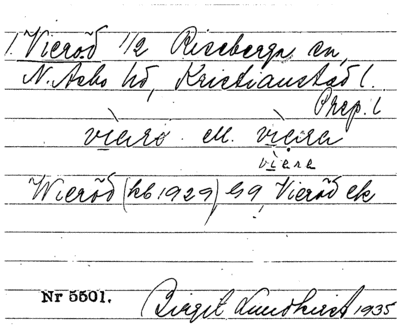 1. Vieröd 1/2 Riseberga sn,
N. Åsbo hd, Kristianstad l.
Prep. i
vìarö el. vìęra
vìere
Wieröd (kb 1929) G9, Vieröd ek
Nr 5501. Birgit Lundkvist 1935